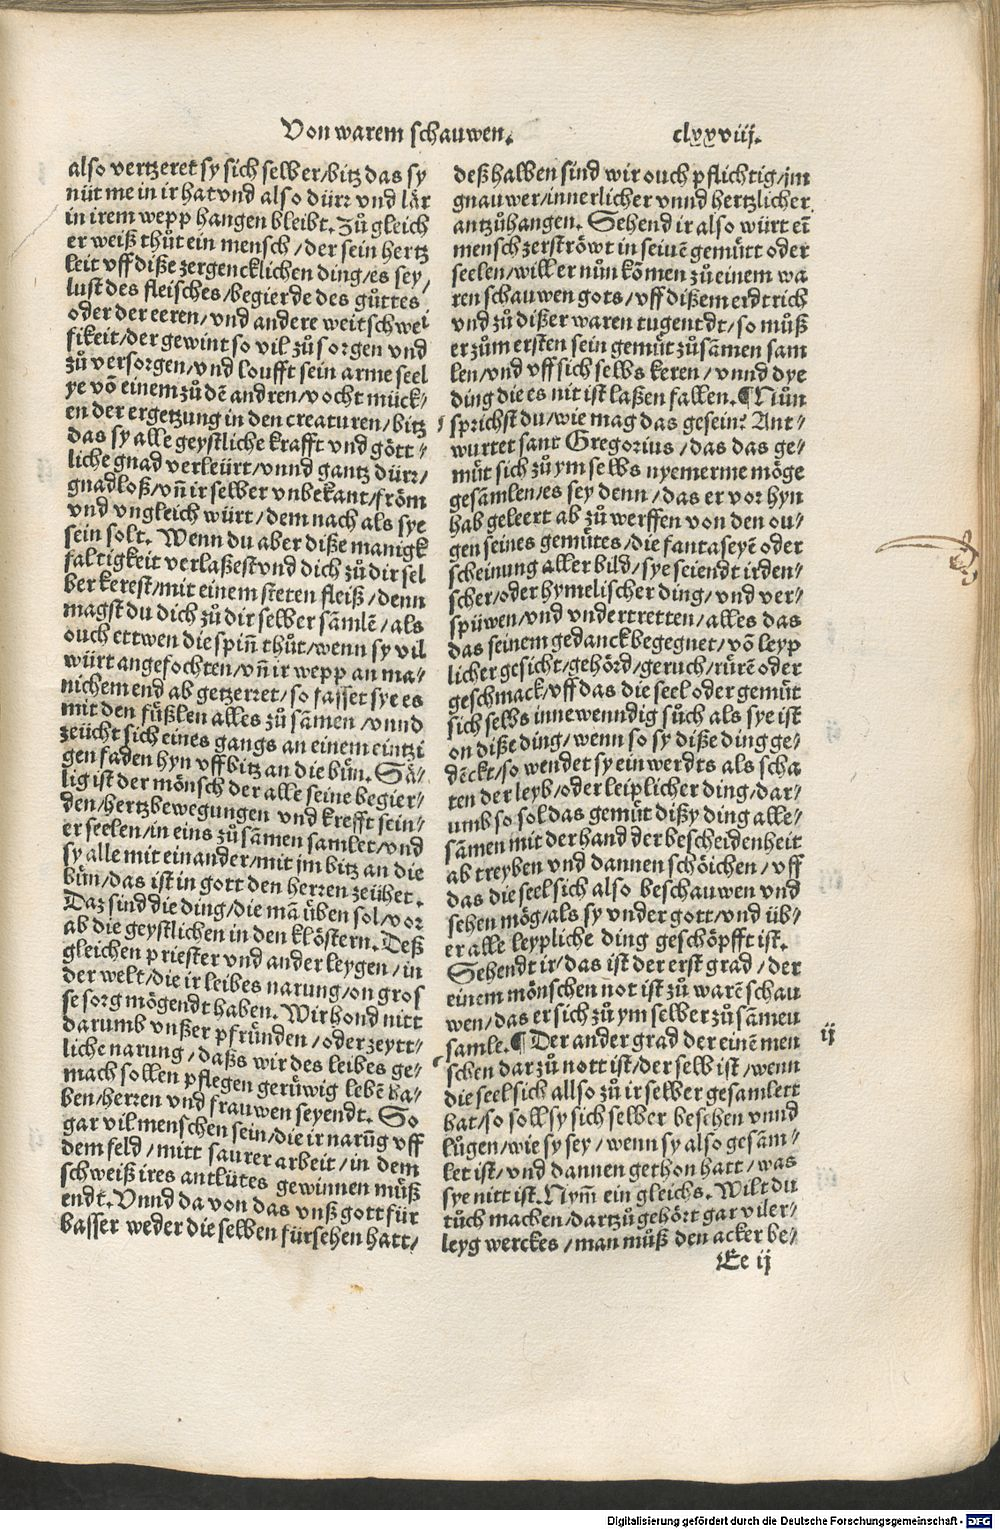 Von warem schauwen.
clxxviij.
also vertzeret sy sich selber/bitz das sy
nüt me in ir hat vnd also dürr vnd lär
in irem wepp hangen bleibt. Zů gleich
er weiß thůt ein mensch/der sein hertz
leit vff diße zergencklichen ding/es sey/
lust des fleisches/begierde des gůttes
oder der eeren/vnd andere weitschwei
fikeit/der gewint so vil zů sorgen vnd
zů versorgen/vnd loufft sein arme seel
ye vō einem zů dē andren/vocht mück⸗
en der ergetzung in den creaturen/bitz
das sy alle geystliche krafft vnd gött⸗
liche gnad verleürt/vnnd gantz dürr/
gnadloß/vn̄ ir selber vnbekant/fröm
vnd vngleich würt/dem nach als sye
sein solt. Wenn du aber diße manigk
faltigkeit verlaßest vnd dich zů dir sel
ber kerest/mit einem steten fleiß/denn
magst du dich zů dir selber sāmlē/als
ouch ettwen die spin̄ thůt/wenn sy vil
würt angefochten/vn̄ ir wepp an ma⸗
nichem end ab getzerret/so fasset sye es
mit den füßlen alles zů sāmen/vnnd
zeücht sich eines gangs an einem eintzi
gen faden hyn vff bitz an die bün. Sä⸗
lig ist der mönsch der alle seine begier⸗
den/hertzbewegungen vnd krefft sein⸗
er seelen/in eins zů sāmen samlet/vnd
sy alle mit einander/mit jm bitz an die
bün/das ist in gott den herren zeühet.
Daz sind die ding/die mā üben sol/vor
ab die geystlichen in den klöstern. Deß
gleichen priester vnd ander leygen/in
der welt/die ir leibes narung/on gros
se sorg mögendt haben. Wir hond nitt
darumb vnßer pfründen/oder zeytt⸗
liche narung/daßs wir des leibes ge⸗
mach sollen pflegen gerüwig lebē ha⸗
ben/herren vnd frauwen seyendt. So
gar vil menschen sein/die ir narūg vff
dem feld/mitt saurer arbeit/in dem
schweiß ires antlütes gewinnen müß
endt. Vnnd da von das vnß gott für
basser weder die selben fürsehen hatt/
deßhalben sind wir ouch pflichtig/jm
gnauwer/innerlicher vnnd hertzlicher
antzůhangen. Sehend ir also würt eī
mensch zerströwt in seinē gemütt oder
seelen/will er nůn kōmen zů einem wa
ren schauwen gots/vff dißem erdtrich
vnd zů dißer waren tugentdt/so můß
er zům ersten sein gemüt zůsāmen sam
len/vnd vff sich selbs keren/vnnd dye
ding die es nit ist laßen fallen. ¶ Nůn
sprichst du/wie mag das gesein? Ant⸗
wurtet sant Gregorius/das das ge⸗
müt sich zů ym selbs nyemerme möge
gesāmlen/es sey denn/das er vor hyn
hab geleert ab zů werffen von den ou⸗
gen seines gemütes/die fantaseyē oder
scheinung aller bild/sye seiendt irden⸗
scher/oder hymelischer ding/vnd ver⸗
spüwen/vnd vndertretten/alles das
das seinem gedanck begegnet/vō leyp
licher gesicht/gehörd/geruch/rürē oder
geschmack/vff das die seel oder gemüt
sich selbs innewenndig sůch als sye ist
on diße ding/wenn so sy diße ding ge⸗
dēckt/so wendet sy einwerdts als scha
ten der leyb/oder leiplicher ding/dar⸗
umb so sol das gemüt dißy ding alle⸗
sāmen mit der hand der bescheidenheit
ab treyben vnd dannen schöichen/vff
das die seel sich also beschauwen vnd
sehen mög/als sy vnder gott/vnd üb⸗
er alle leypliche ding geschöpfft ist.
Sehendt ir/das ist der erst grad/der
einem mönschen not ist zů warē schau
wen/das er sich zů ym selber zůsāmen
samle. ¶ Der ander grad der einē men
schen dar zů nott ist/der selb ist/wenn
die seel sich allso zů ir selber gesamlett
hat/so soll sy sich selber besehen vnnd
lůgen/wie sy sey/wenn sy also gesām⸗
let ist/vnd dannen gethon hatt/was
sye nitt ist. Nym̄ ein gleichs. Wilt du
tůch machen/dartzů gehört gar viler⸗
leyg werckes/man můß den acker be⸗
ij
Ee ij
Digitalisierung gefördert durch die Deutsche Forschungsgemeinschaft - DFG